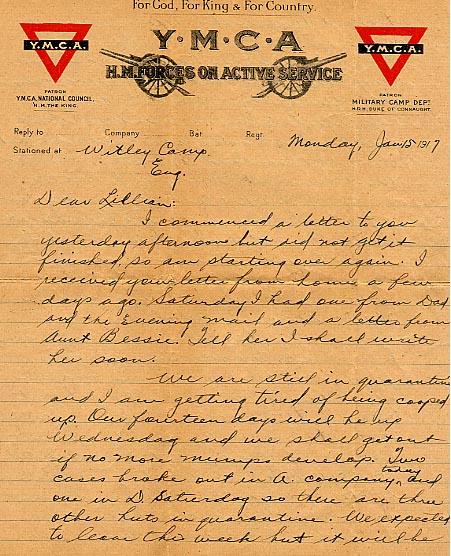 For God, For King & For Country.
Y.M.C.A.
Y·M·C·A
Y.M.C.A.
H.M. FORCES ON ACTIVE SERVICE
PATRON
Y.M.C.A. NATIONAL COUNCIL,
H.M. THE KING.
PATRON
MILITARY CAMP DEPT
H.R.H. DUKE OF CONNAUGHT.
Reply to Company Bat Regt.
Monday, Jan 15 1917
Stationed at Witley Camp
Eng.
Dear Lillian:
I commenced a letter to you
yesterday afternoon but did not get it
finished, so am starting over again. I
received your letter from home a few
days ago. Saturday I had one from Dad
and the Evening Mail and a letter from
Aunt Bessie. Tell her I shall write
her soon.
We are still in quarantine
and I am getting tired of being cooped
up. Our fourteen days will be up
Wednesday and we shall get out
if no more mumps develop. Two
cases broke out in A. company today, and
one in D Saturday so there are three
other huts in quarantine. We expected
to leave this week but it will be